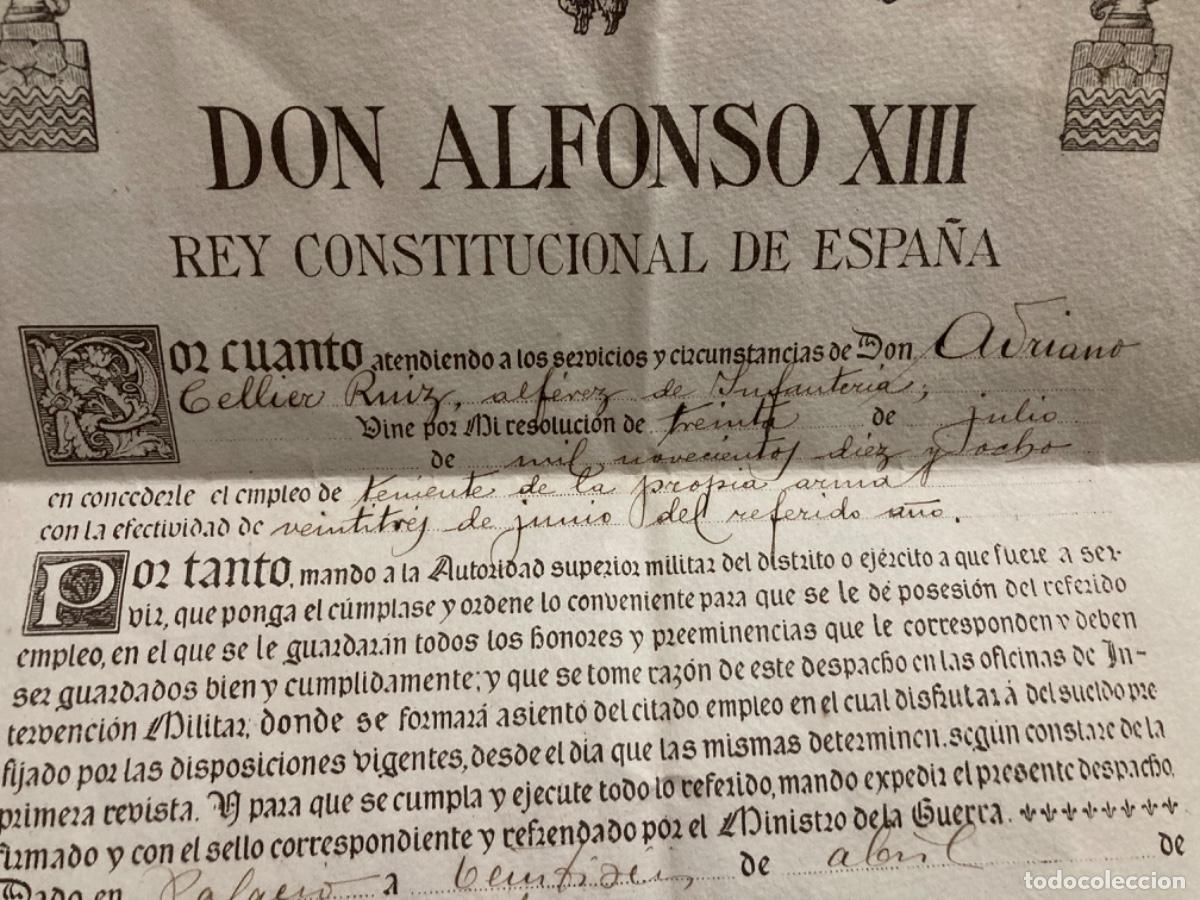 DON ALFONSO XIII
REY CONSTITUCIONAL DE ESPAÑA
Por cuanto atendiendo a los servicios y circunstancias de Don Adriano
Tellier Ruiz, alférez de Infantería,
Vine por Mi resolución de treinta de julio
de mil novecientos diez y ocho
en concederle el empleo de teniente de la propia arma
con la efectividad de veintitrés de junio del referido año.
Por tanto, mando a la Autoridad superior militar del distrito o ejército a que fuere a ser-
vir, que ponga el cúmplase y ordene lo conveniente para que se le dé posesión del referido
empleo, en el que se le guardarán todos los honores y preeminencias que le corresponden y deben
ser guardados bien y cumplidamente; y que se tome razón de este despacho en las oficinas de In-
tervención Militar, donde se formará asiento del citado empleo en el cual disfrutará del sueldo pre-
fijado por las disposiciones vigentes, desde el día que las mismas determinen, según constare de la
primera revista. Y para que se cumpla y ejecute todo lo referido, mando expedir el presente despacho,
firmado y con el sello correspondiente y refrendado por el Ministro de la Guerra.
Dado en Palacio a veintiséis de abril de
todocoleccion